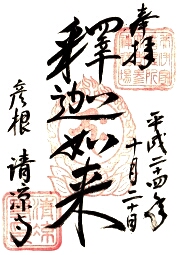 奉拝
平成二十四年
十月二十日
釋迦如来
彦根
清凉寺